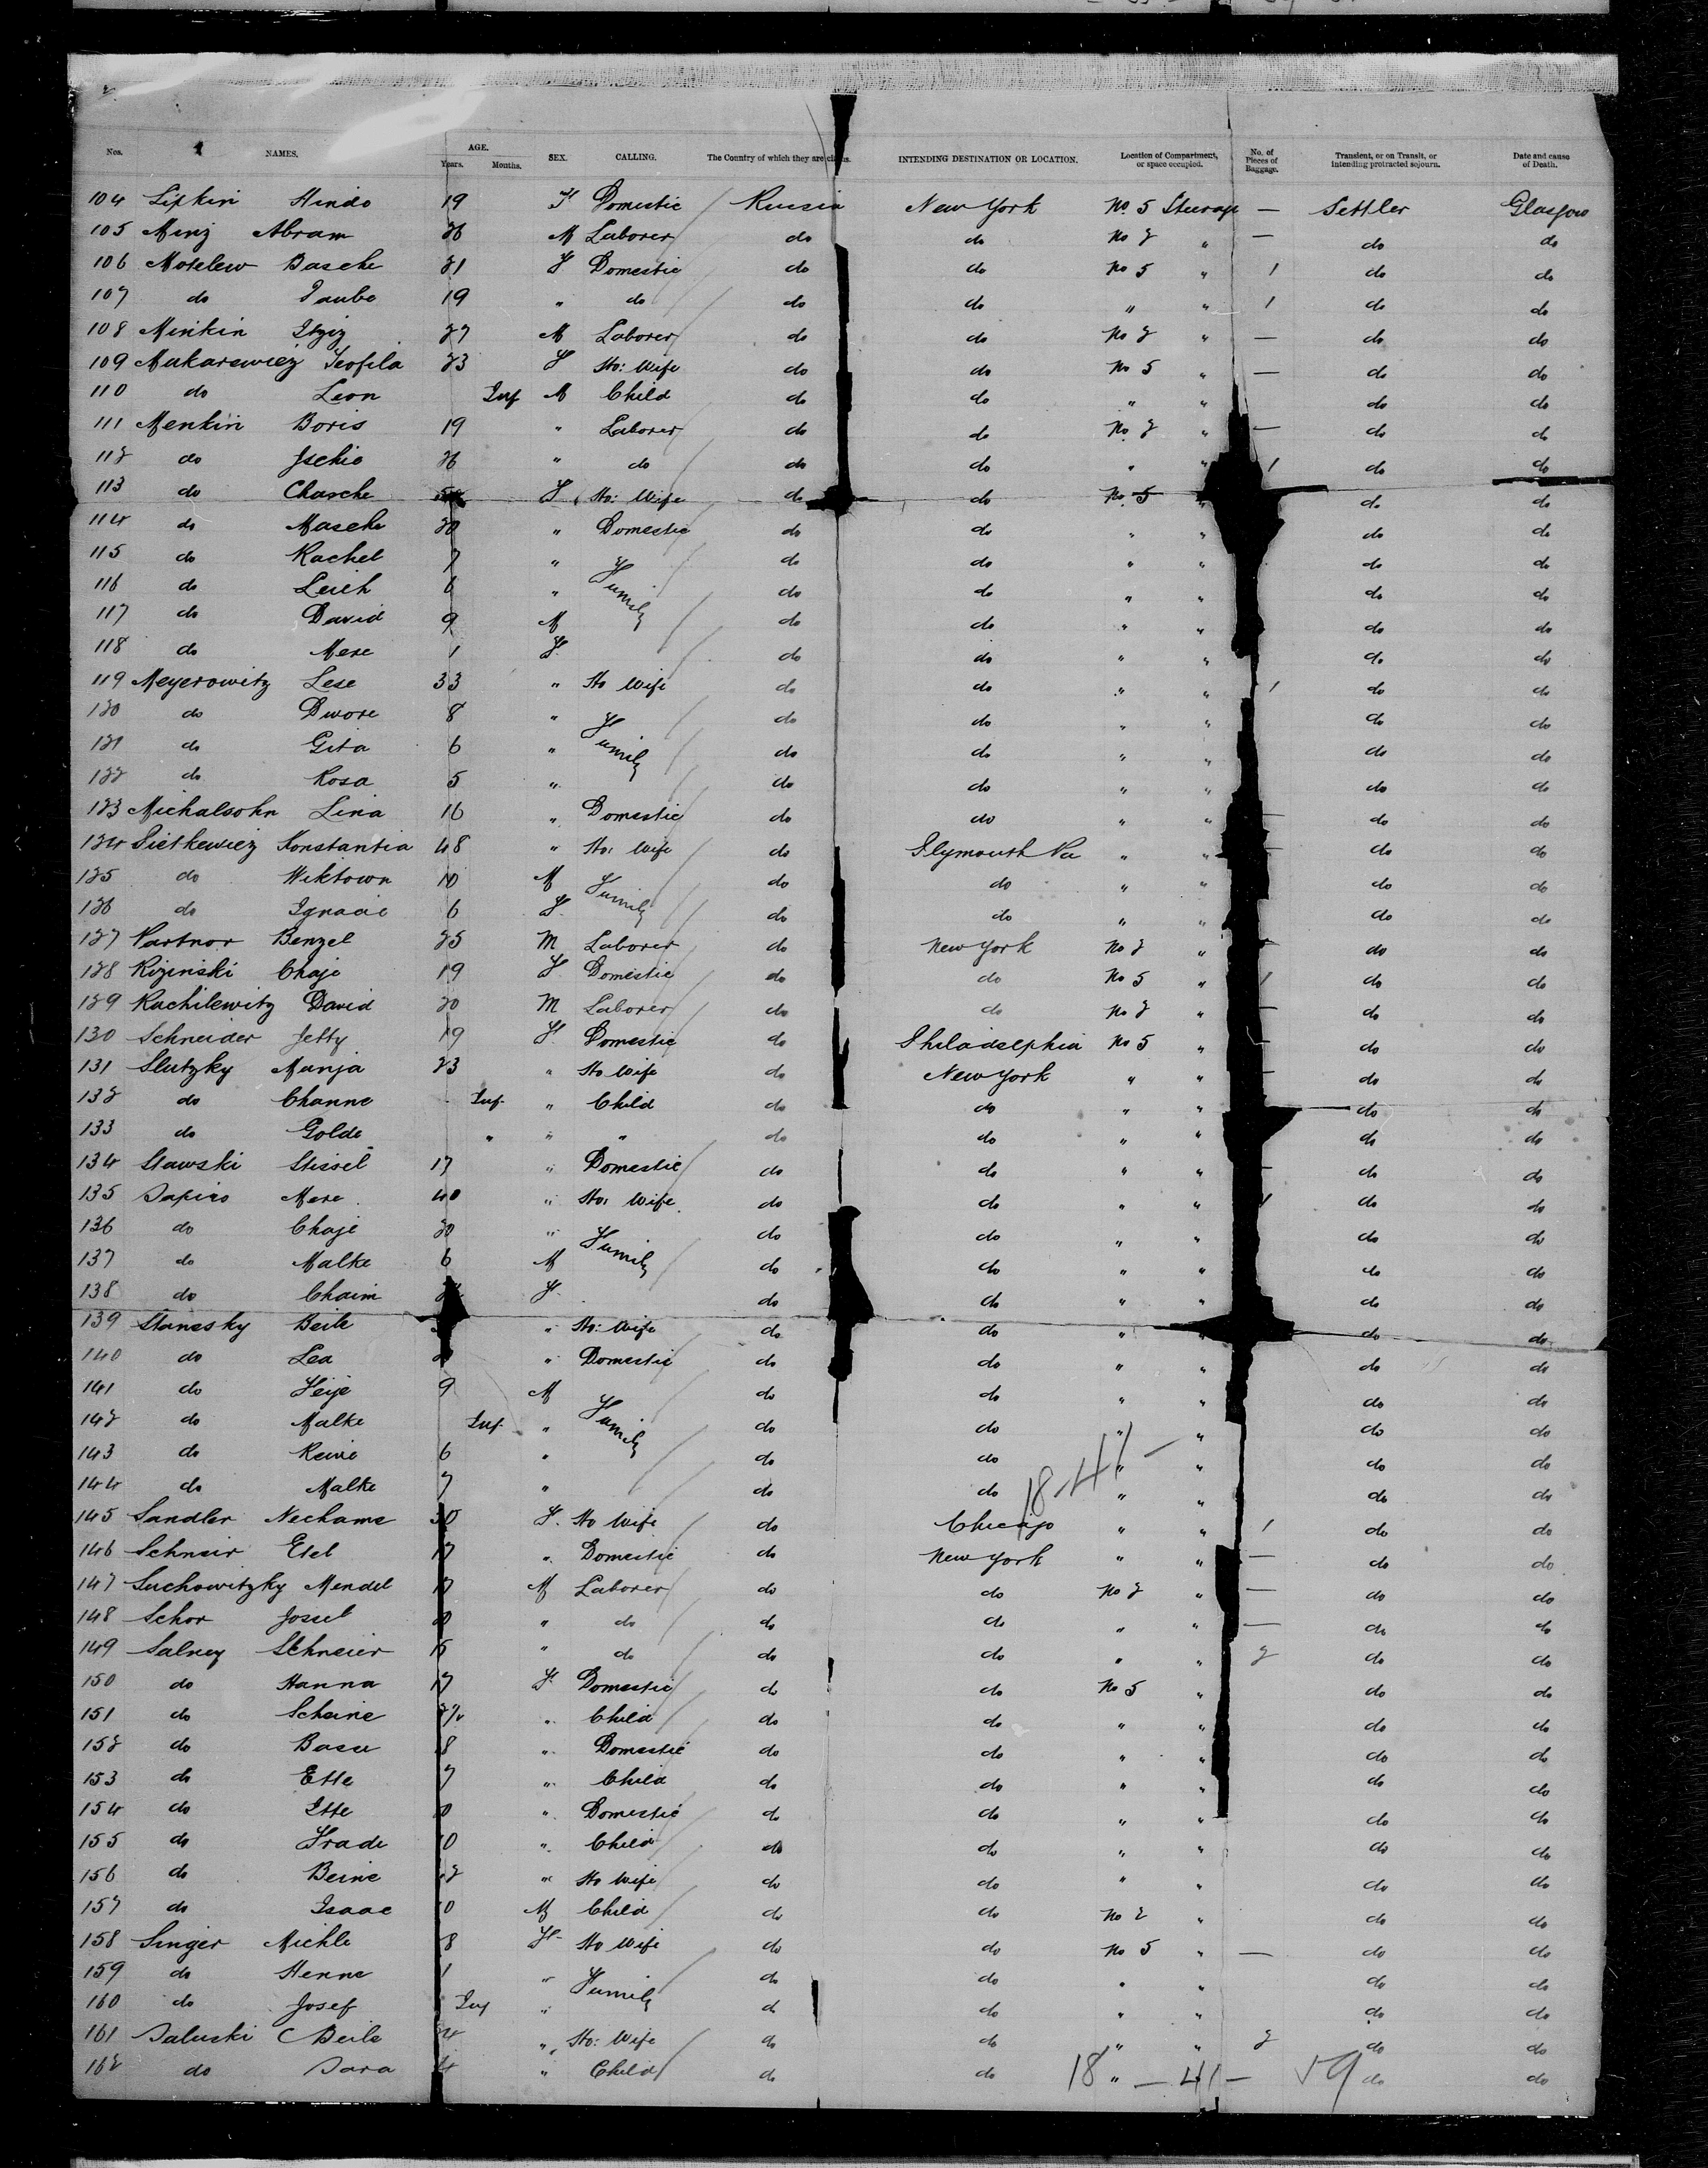 Nos. NAMES. AGE. Years. Months. SEX. CALLING. The Country of which they are INTENDING DESTINATION OR LOCATION. Location of Compartment, or space occupied. No. of Pieces of Baggage. Transient, or on Transit, or intending protracted sojourn. Date and cause of Death.
104 Lipkin Hinde 19 F Domestic Russia New York No. 5 Steerage — Settler Glasgow
105 Minz Abram 26 M Laborer do do No 2 " — do do
106 Motelew Basche 21 F Domestic do do No 5 " 1 do do
107 do Taube 19 " do do do " " 1 do do
108 Minkin Itzig 27 M Laborer do do No 2 " — do do
109 Makarewicz Teofila 23 F Ho: Wife do do No 5 " — do do
110 do Leon Inf M Child do do " " do do
111 Menkin Boris 19 " Laborer do do No 2 " — do do
112 do Jschie 26 " do do do " " 1 do do
113 do Chasche F Ho: Wife do do No. 5 " do do
114 do Masche 20 " Domestic do do " " do do
115 do Rachel 7 " Family do do " " do do
116 do Leieh 6 " do do " " do do
117 do David 9 M do do " " do do
118 do Mere 1 F do do " " do do
119 Meyerowitz Lese 33 " Ho Wife do do " " 1 do do
120 do Dwore 8 " Family do do " " do do
121 do Gita 6 " do do " " do do
122 do Rosa 5 " do do " " do do
123 Michalsohn Lina 16 " Domestic do do " " — do do
124 Pietkewicz Konstantia 48 " Ho: Wife do Plymouth Pa " " — do do
125 do Wiktown 10 M Family do do " " do do
126 do Ignacie 6 F do do " " do do
127 Partnor Benzel 25 M Laborer do New York No 2 " — do do
128 Rizinski Chaje 19 F Domestic do do No 5 " 1 do do
129 Rachilewitz David 20 M Laborer do do No 2 " — do do
130 Schneider Jetty 19 F Domestic do Philadelphia No 5 " — do do
131 Slutzky Manja 23 " Ho Wife do New York " " — do do
132 do Channe Inf " Child do do " " do do
133 do Golde " " " do do " " do do
134 Stawski Stissel 17 " Domestic do do " " — do do
135 Sapiro Mere 40 " Ho: Wife do do " " 1 do do
136 do Chaje 20 " Family do do " " do do
137 do Malke 6 M do do " " do do
138 do Chaim F do do " " do do
139 Stanesky Beile " Ho: Wife do do " " do do
140 do Lea " Domestic do do " " do do
141 do Feije 9 M Family do do " " do do
142 do Malke Inf " do do " " do do
143 do Reive 6 " do do " " do do
144 do Malke 7 " do do " " do do
18-41 —
145 Sandler Nechame 30 F. Ho Wife do Chicago " " 1 do do
146 Schneir Etel 17 " Domestic do New York " " — do do
147 Suchowitzky Mendel 17 M Laborer do do No 2 " — do do
148 Schor Jossel " do do do " " — do do
149 Salney Schneier " do do do " " 2 do do
150 do Hanna 17 F Domestic do do No 5 " do do
151 do Scheine " Child do do " " do do
152 do Base 8 " Domestic do do " " do do
153 do Ette 7 " Child do do " " do do
154 do Itte " Domestic do do " " do do
155 do Frade 0 " Child do do " " do do
156 do Beine 2 " Ho Wife do do " " do do
157 do Isaac 0 M Child do do No 2 " do do
158 Singer Michle 8 F Ho Wife do do No 5 " — do do
159 do Henne 1 " Family do do " " do do
160 do Josef Inf " d do " " do do
161 Saluski Beile 4 " Ho: Wife do do " " 2 do do
162 do Sara 4 " Child do do " do do
18 — 41 — 59